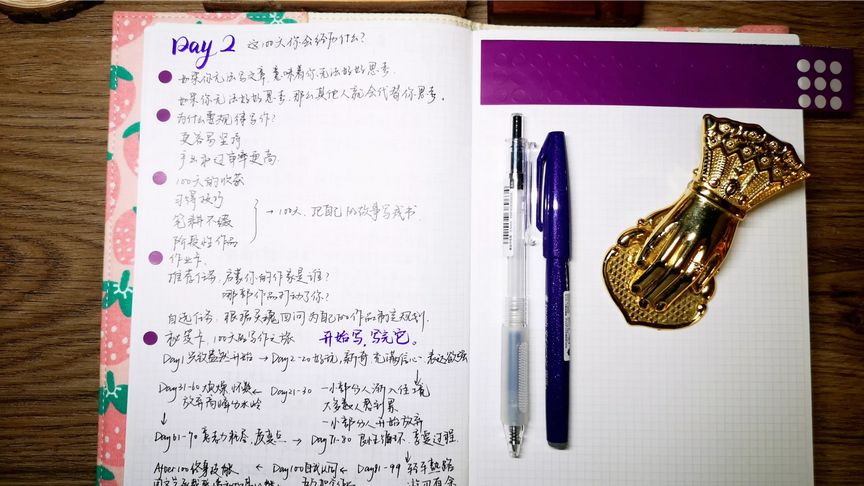 Day 2 这100天你会经历什么?
如果你无法写文章,意味着你无法好好思考.
如果你无法好好思考,那么其他人就会代替你思考.
为什么要规律写作?
更容易坚持
产出和过审率更高.
100天的收获
习得技巧
笔耕不缀 → 100天,把自己的故事写成书.
阶段性作品
作业卡.
推荐任务:启蒙你的作家是谁?
哪部作品打动了你?
自选任务:根据灵魂回问为自己的作品制定规划.
秘笈卡,100天的写作之旅 开始写,写完它。
Day1 兴致盎然开始 → Day2-20 好玩,新奇 充满信心 表达欲强
Day31-60 怀疑 ← Day21-30 一小部分人渐入佳境
放弃高峰分水岭 大多数人觉到累
一小部分人开始放弃
Day61-70 意志力耗尽,度变点 → Day71-80 良性循环.享受过程.
After100 终身技能 ← Day100 ← Day81-99 轻车熟路
游刃有余